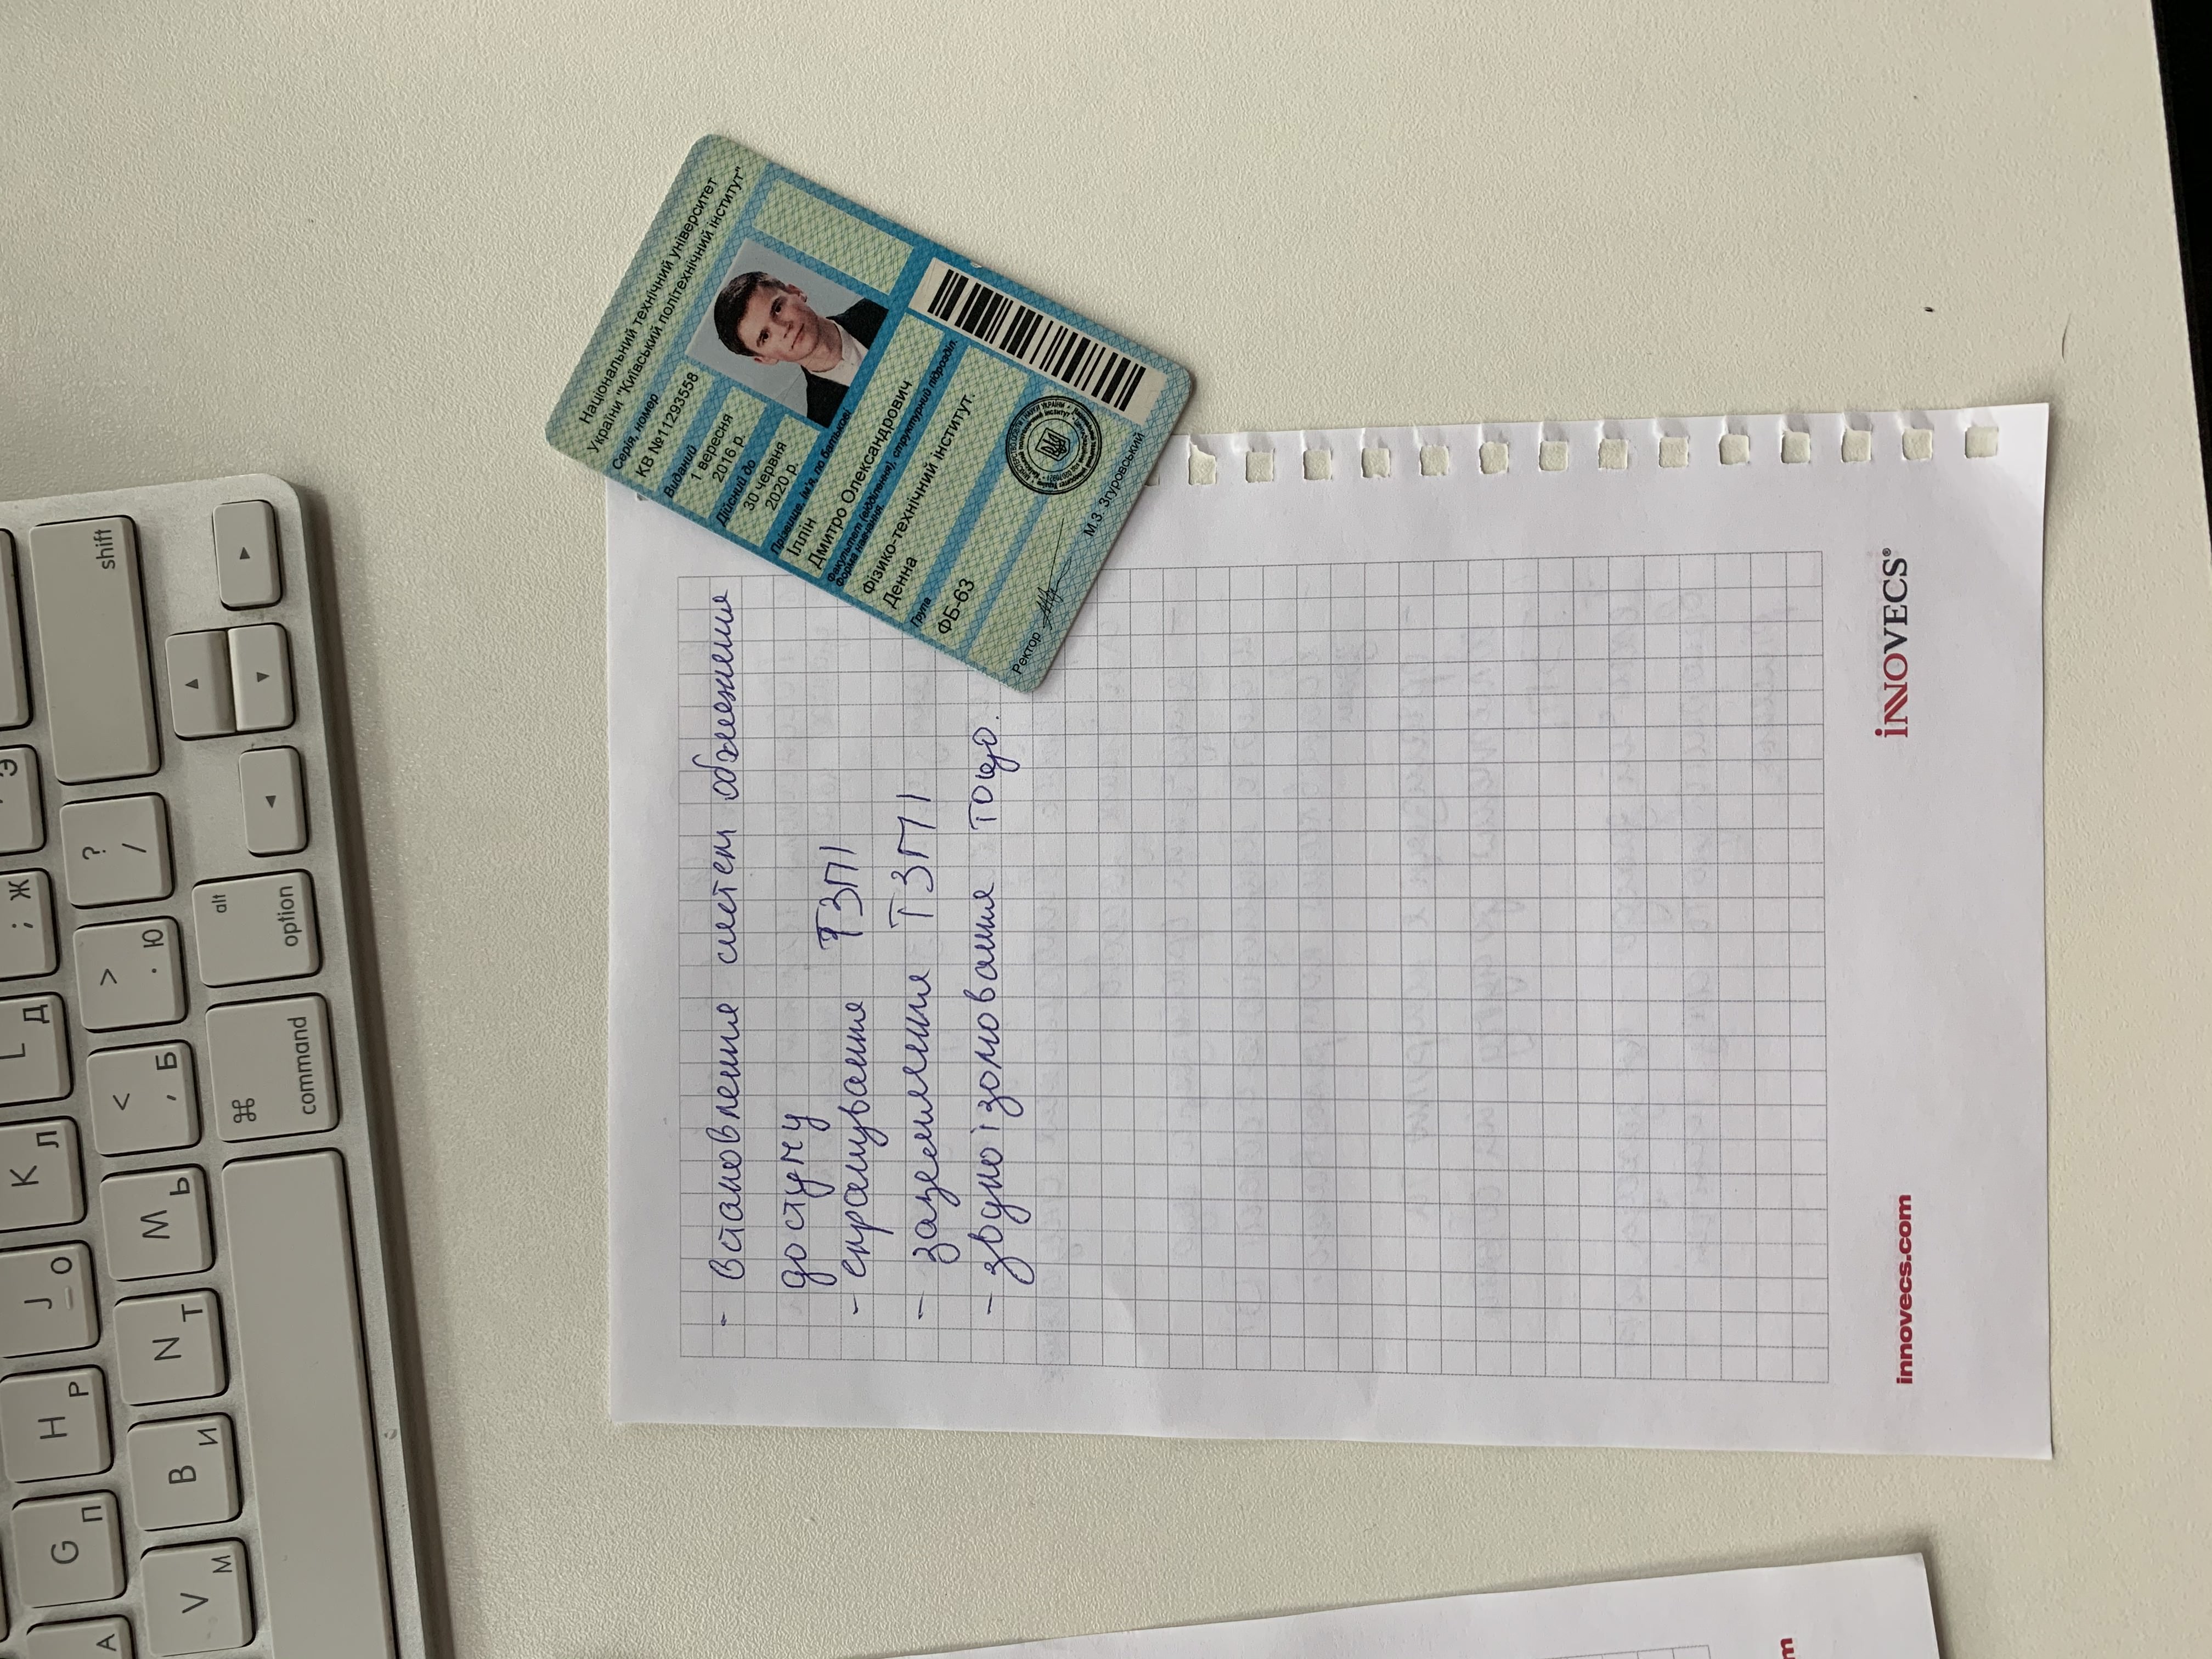 А G П H Р J О K Л L Д ; Ж ' Э
V М B И N Т M Ь < , Б > . Ю ? / shift
⌘ command alt option ◄ ▲ ▼ ►
- встановлення систем обмеження
доступу
- екранування ТЗПІ
- заземлення ТЗПІ
- звукоізолювання тощо.
innovecs.com
iNNOVECS®
m
Національний технічний університет
України "Київський політехнічний інститут"
Серія, номер
КВ №11293558
Виданий
1 вересня
2016 р.
Дійсний до
30 червня
2020 р.
Прізвище, ім'я, по батькові
Іллін
Дмитро Олександрович
Факультет (відділення), структурний підрозділ.
Форма навчання.
Фізико-технічний інститут.
Денна
Група
ФБ-63
Ректор
М.З. Згуровський